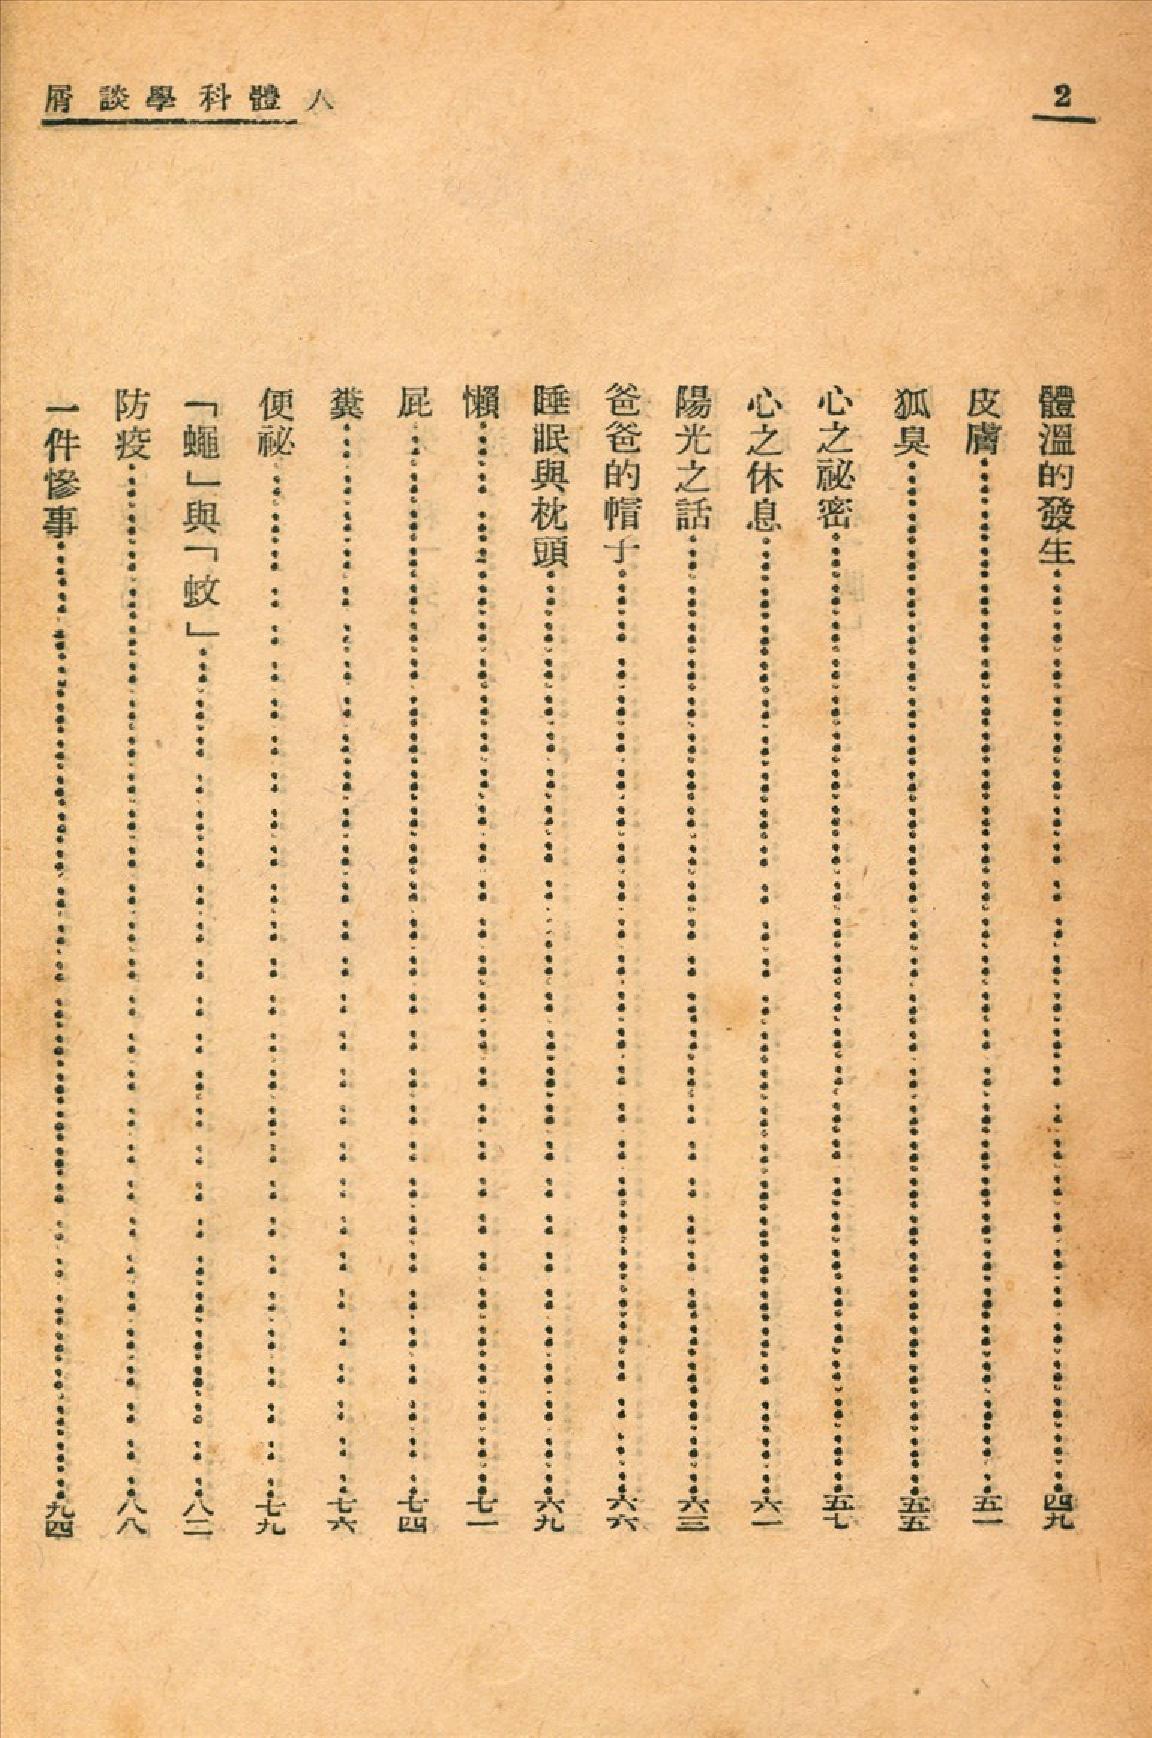 人體科學談屑
2
體溫的發生……四九
皮膚……五一
狐臭……五五
心之祕密……五七
心之休息……六一
陽光之話……六三
爸爸的帽子……六六
睡眠與枕頭……六九
懶……七一
屁……七四
糞……七六
便祕……七九
「蠅」與「蚊」……八二
防疫……八八
一件慘事……九四